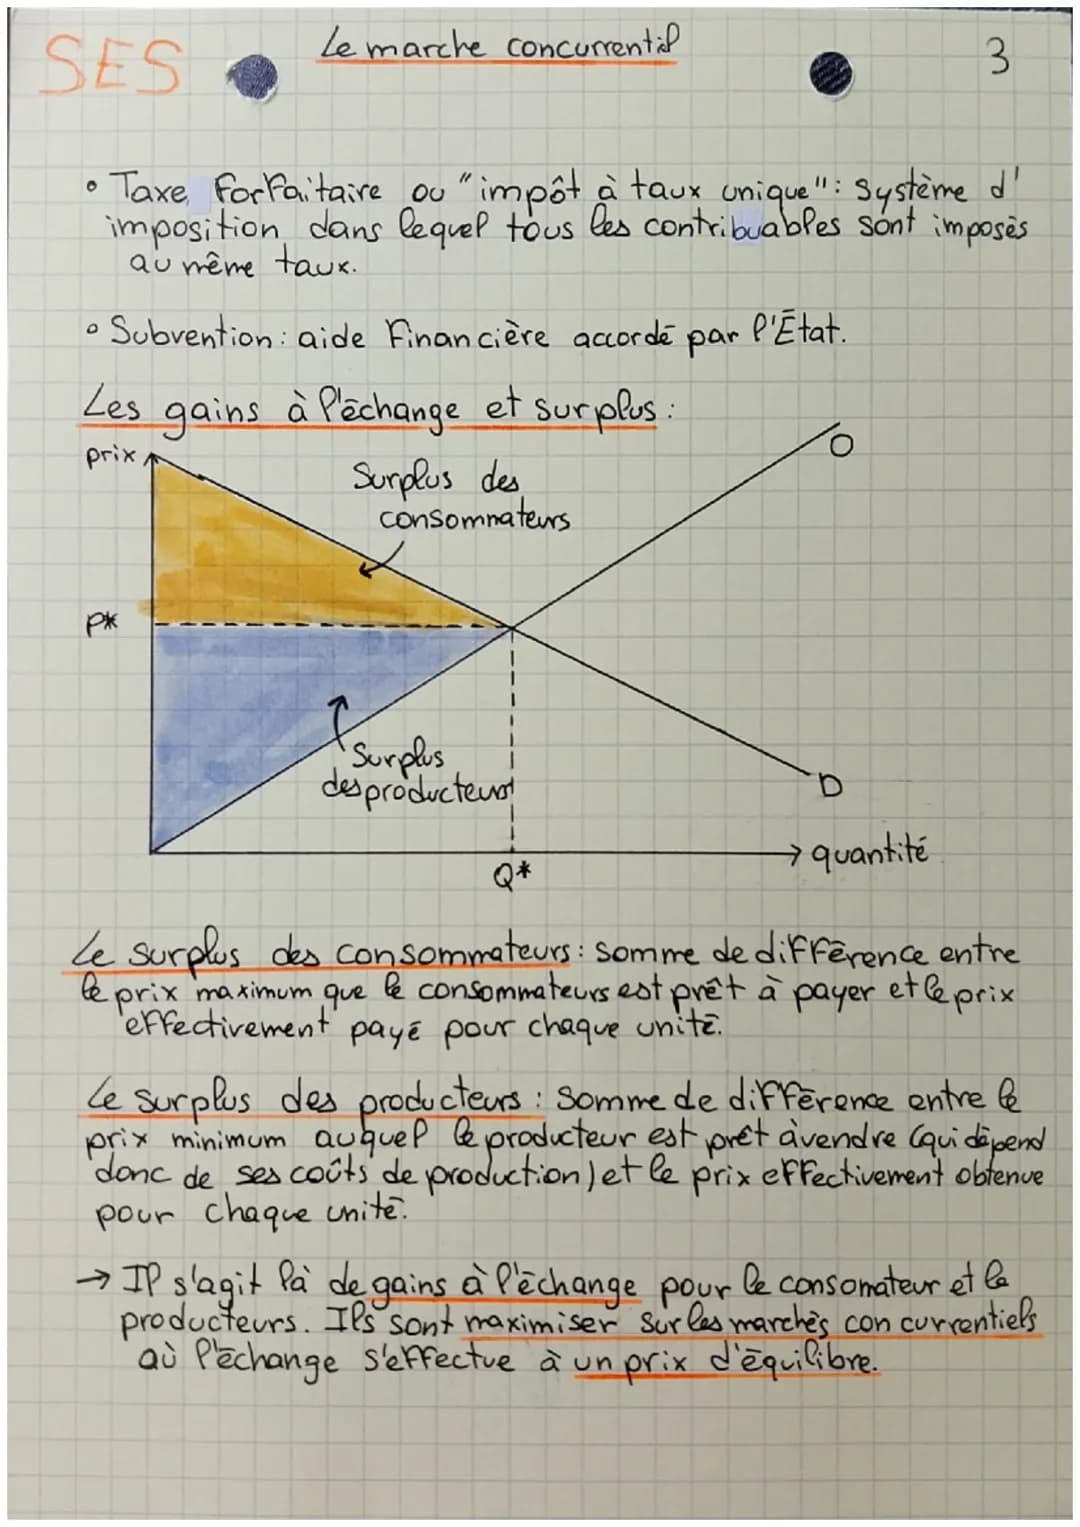 SES
Le marche concurrentiel
3
• Taxe forfaitaire ou "impôt à taux unique": système d'
imposition dans lequel tous les contribuables sont imposés
au même taux.
• Subvention : aide financière accordé par l'État.
Les gains à l'échange et surplus :
prix
O
Surplus des
consommateurs
P*
Surplus
des producteurs
D
quantité
Q*
Le surplus des consommateurs : somme de différence entre
le prix maximum que le consommateurs est prêt à payer et le prix
effectivement payé pour chaque unité.
Le surplus des producteurs : Somme de différence entre le
prix minimum auquel le producteur est prêt à vendre (qui dépend
donc de ses coûts de production) et le prix effectivement obtenue
pour chaque unité.
→ Il s'agit là de gains à l'échange pour le consomateur et le
producteurs. Ils sont maximiser sur les marchés concurrentiels
où l'échange s'effectue à un prix d'équilibre.